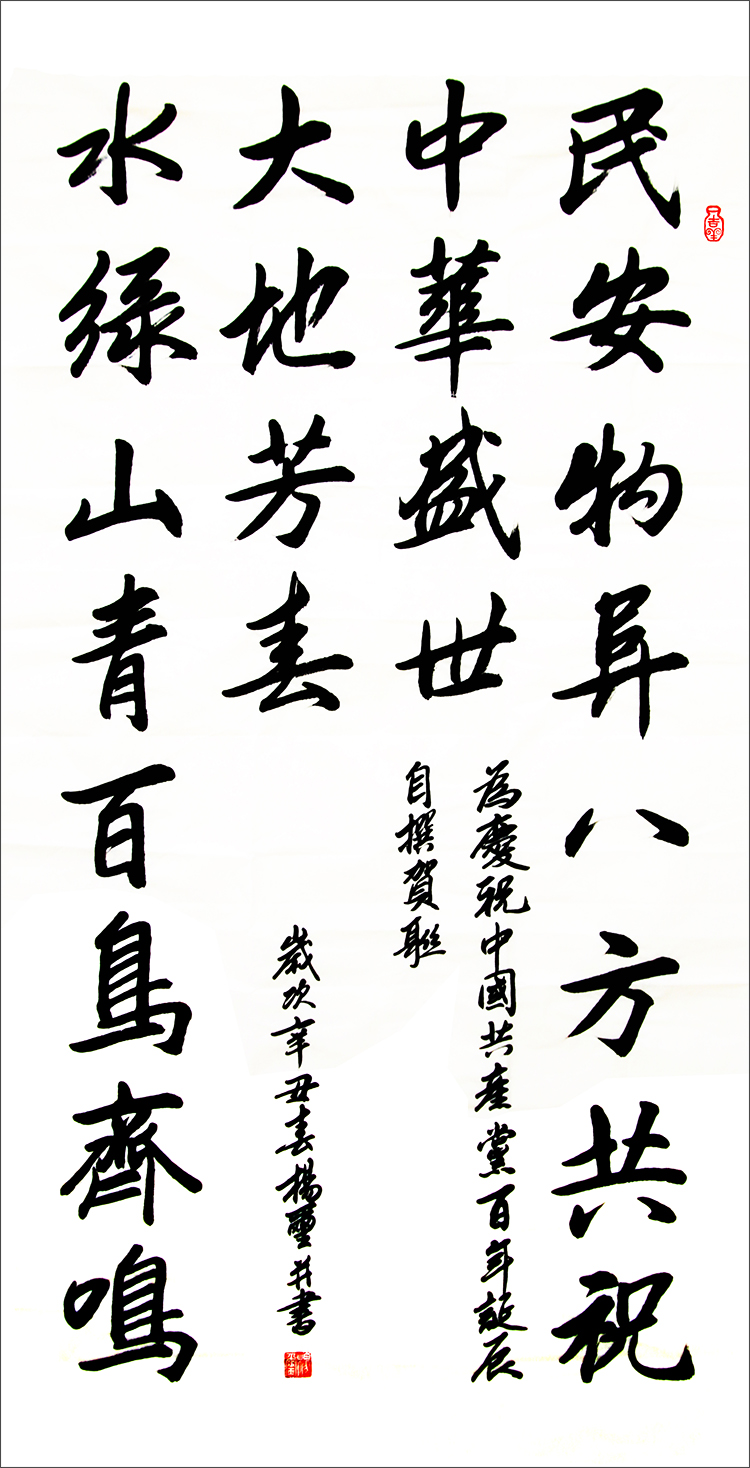 民安物阜八方共祝
中華盛世
為慶祝中國共產黨百年誕辰
自撰賀聯
水緑山青百鳥齊鳴
大地芳春
歲次辛丑春楊并書